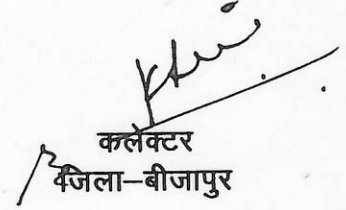 कलेक्टर
जिला–बीजापुर